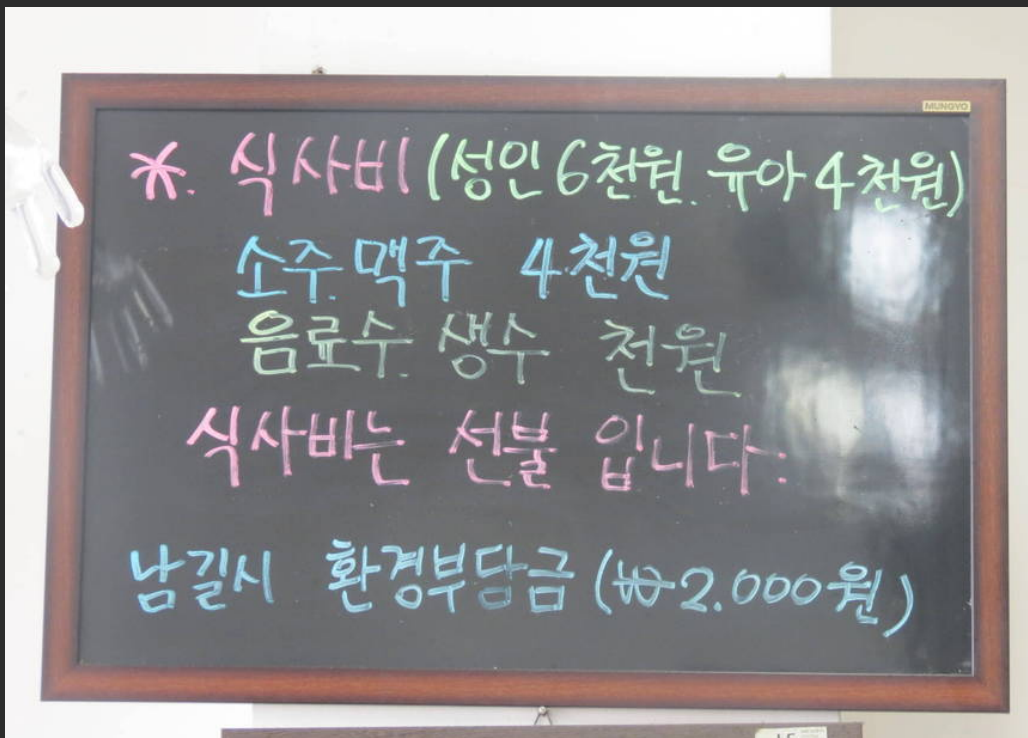 MUNGYO
*. 식사비 (성인 6천원. 유아 4천원)
소주. 맥주 4천원
음료수. 생수 천원
식사비는 선불 입니다.
남길시 환경부담금 (₩2.000원)